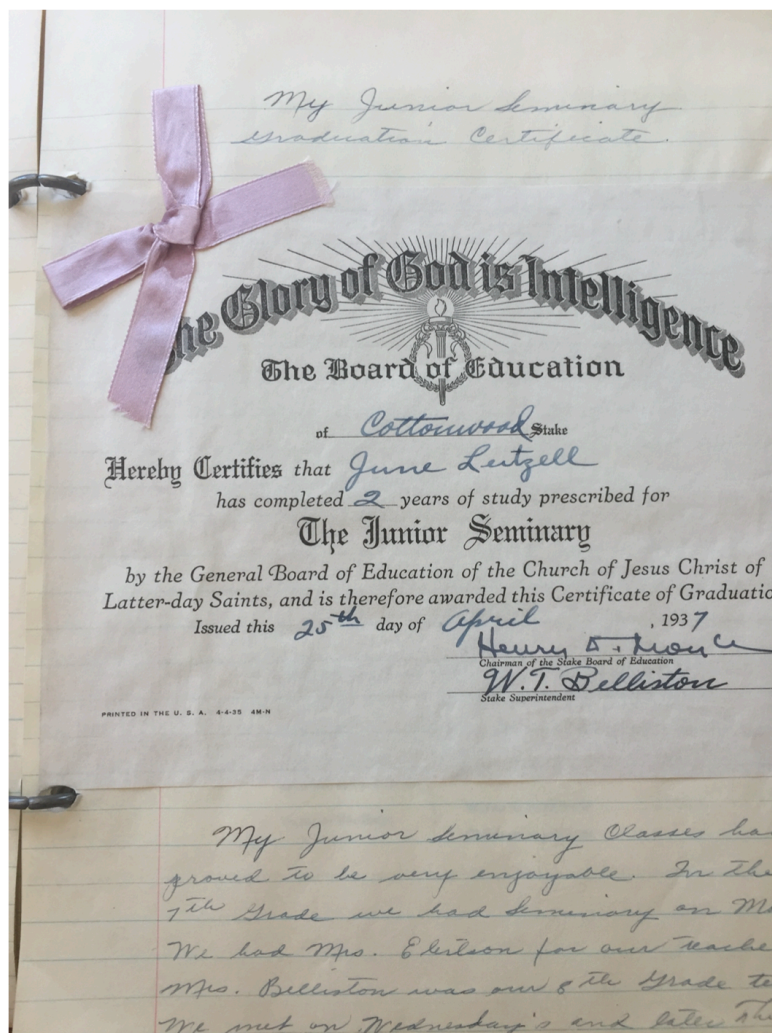 My Junior Seminary
Graduation Certificate.
The Glory of God is Intelligence
The Board of Education
of Cottonwood Stake
Hereby Certifies that June Leitzell
has completed 2 years of study prescribed for
The Junior Seminary
by the General Board of Education of the Church of Jesus Christ of
Latter-day Saints, and is therefore awarded this Certificate of Graduatio
Issued this 25th day of April, 1937
Henry D.
Chairman of the Stake Board of Education
W. T. Belliston
Stake Superintendent
PRINTED IN THE U. S. A. 4-4-35 4M-N
My Junior Seminary Classes ha
proved to be very enjoyable. In the
7th Grade we had Seminary on Mo
We had Mrs. for our teache
Mrs. Belliston was our 8th Grade te
We met on Wednesday's and later Th